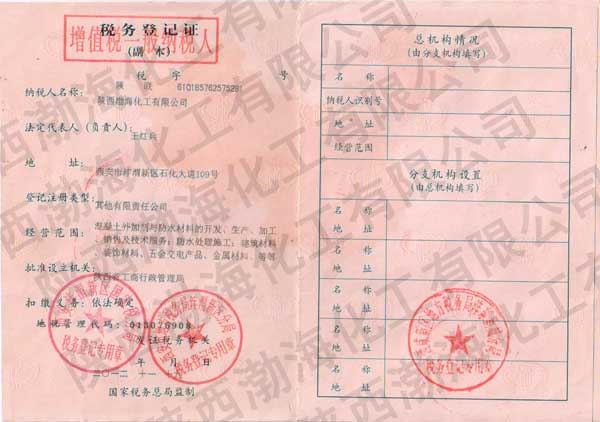 税务登记证
增值税一般纳税人
(副 本)
税 字 号
陕 联 610185762575281
纳税人名称：
陕西渤海化工有限公司
法定代表人（负责人）：
王红兵
地 址：
西安市泾渭新区石化大道109号
登记注册类型：
其他有限责任公司
经营范围：
混凝土外加剂与防水材料的开发、生产、加工
、销售及技术服务；防水处理施工；建筑材料
装饰材料、五金交电产品、金属材料、等等
批准设立机关：
陕西省工商行政管理局
扣缴义务：依法确定
地税管理代码：013076908
发证税务机关
年 月 日
二〇一二 十一
国家税务总局监制
税务登记专用章
税务登记专用章
总机构情况
(由分支机构填写)
名 称
纳税人识别号
地 址
经营范围
分支机构设置
(由总机构填写)
名 称
地 址
名 称
地 址
名 称
地 址
名 称
地 址
名 称
地 址
税务登记专用章
陕西渤海化工有限公司
陕西渤海化工有限公司
陕西渤海化工有限公司